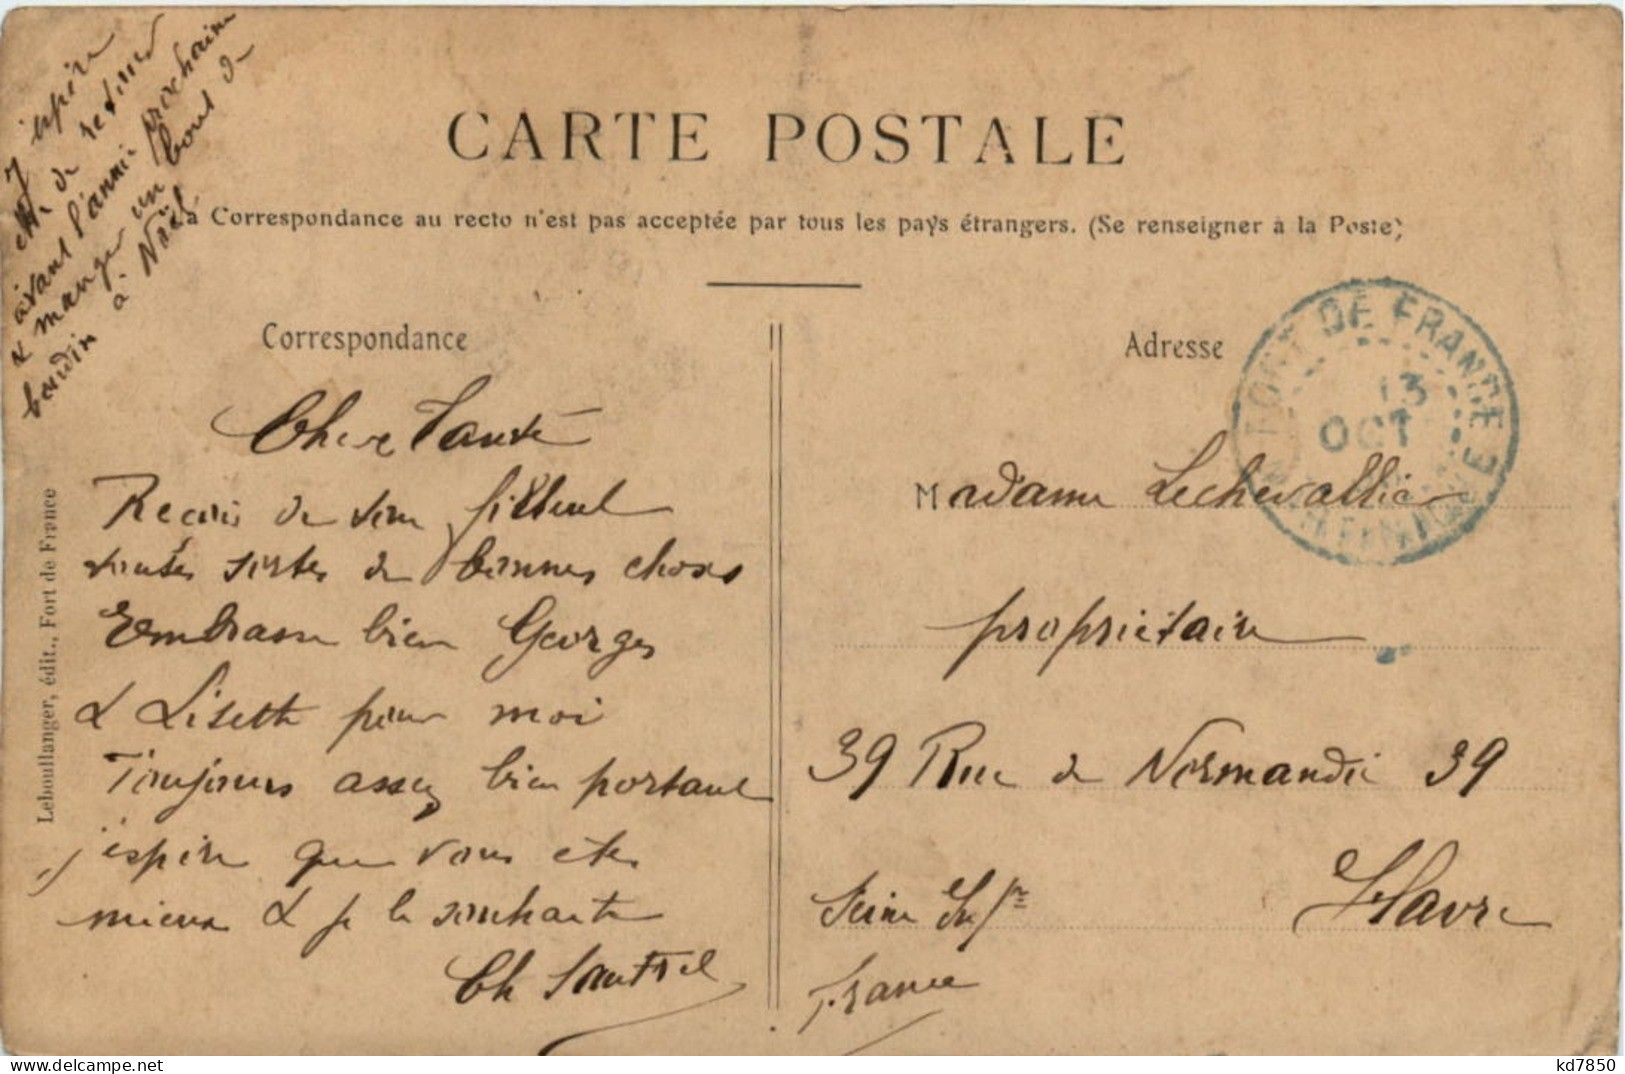 J'espère
être de retour
avant l'année prochaine
& manger un bout de
boudin à Noël
CARTE POSTALE
a Correspondance au recto n'est pas acceptée par tous les pays étrangers. (Se renseigner à la Poste)
Correspondance
Adresse
FORT DE FRANCE
13
OCT
MARTINIQUE
Chere Tante
Reçois de ton filleul
toutes sortes de bonnes choses
Embrasse bien Georges
& Lisette pour moi
Toujours assez bien portant
j'espère que vous etes
mieux & je le souhaite
Ch
Madame Lechevallier
propriétaire
39 Rue de Normandie 39
Havre
Seine Infre
France
Leboullanger, édit., Fort de France
delcampe.net
kd7850